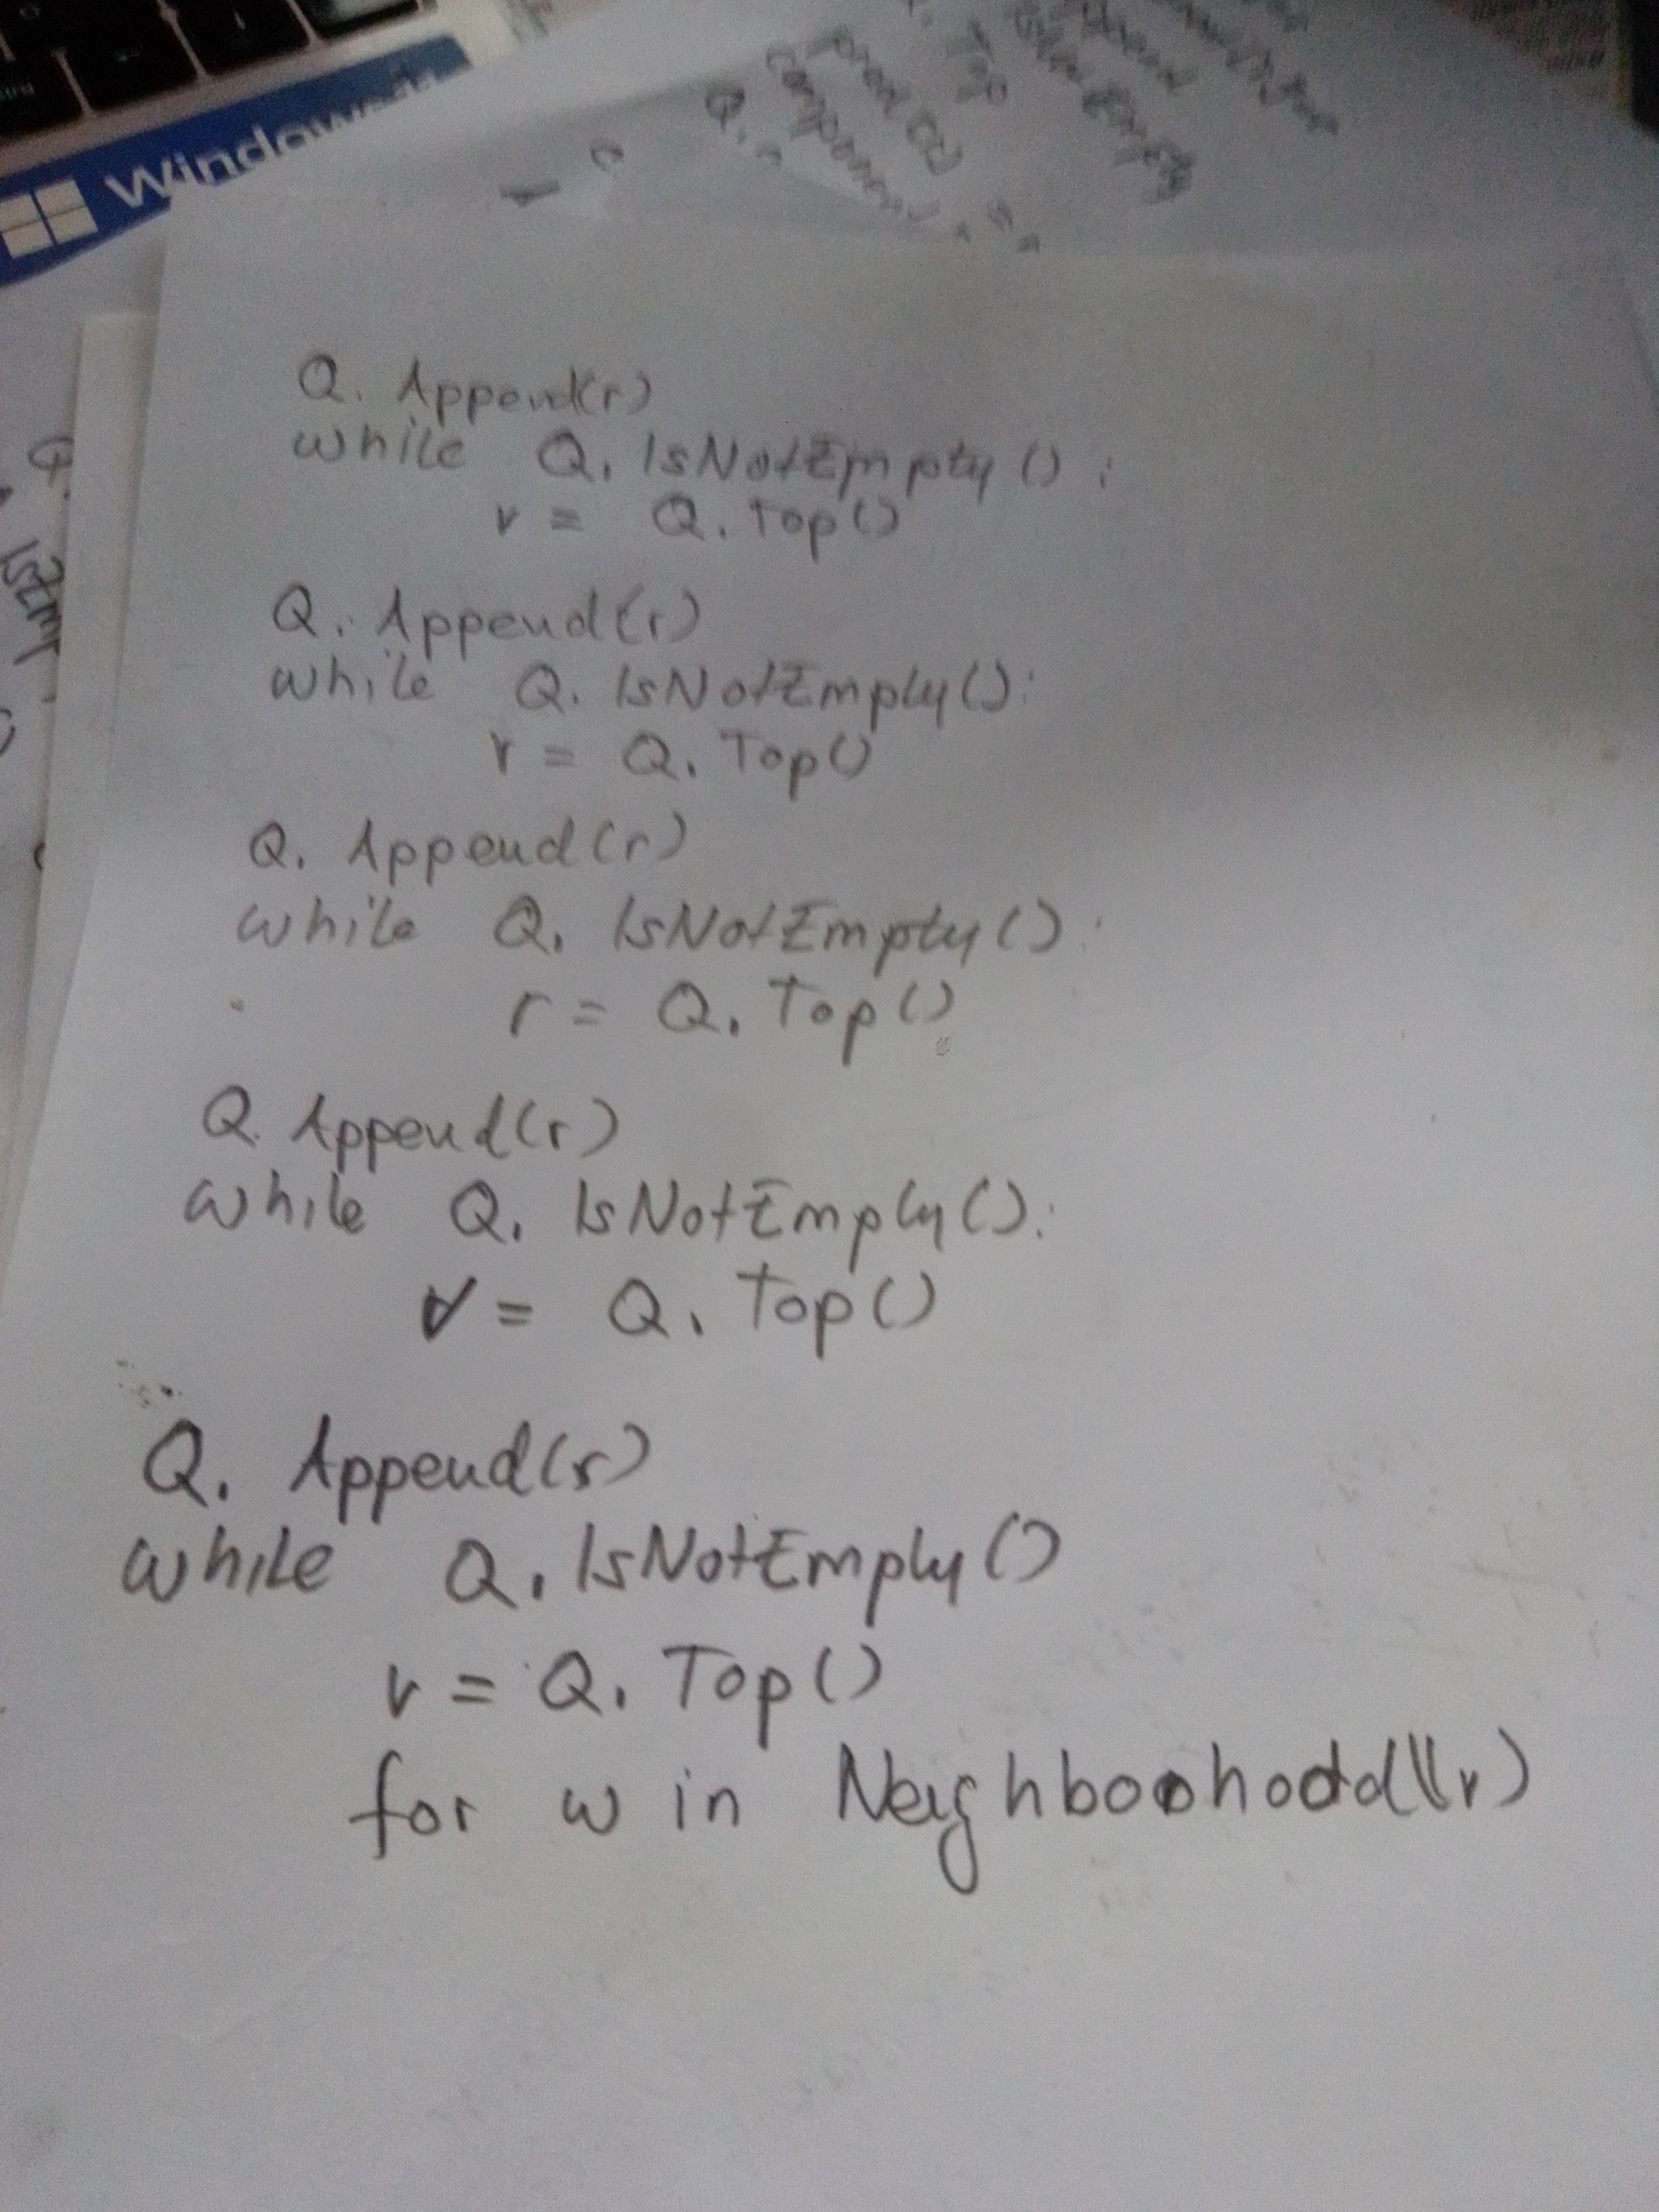 Windows
Top
Q. Append(r)
while Q. IsNotEmpty():
v = Q. Top()
Q. Append(r)
while Q. IsNotEmpty():
r = Q. Top()
Q. Append(r)
while Q. IsNotEmpty():
r = Q. Top()
Q. Append(r)
while Q. IsNotEmpty():
v = Q. Top()
Q. Append(r)
while Q. IsNotEmpty()
v = Q. Top()
for w in Neighboohodd((v)